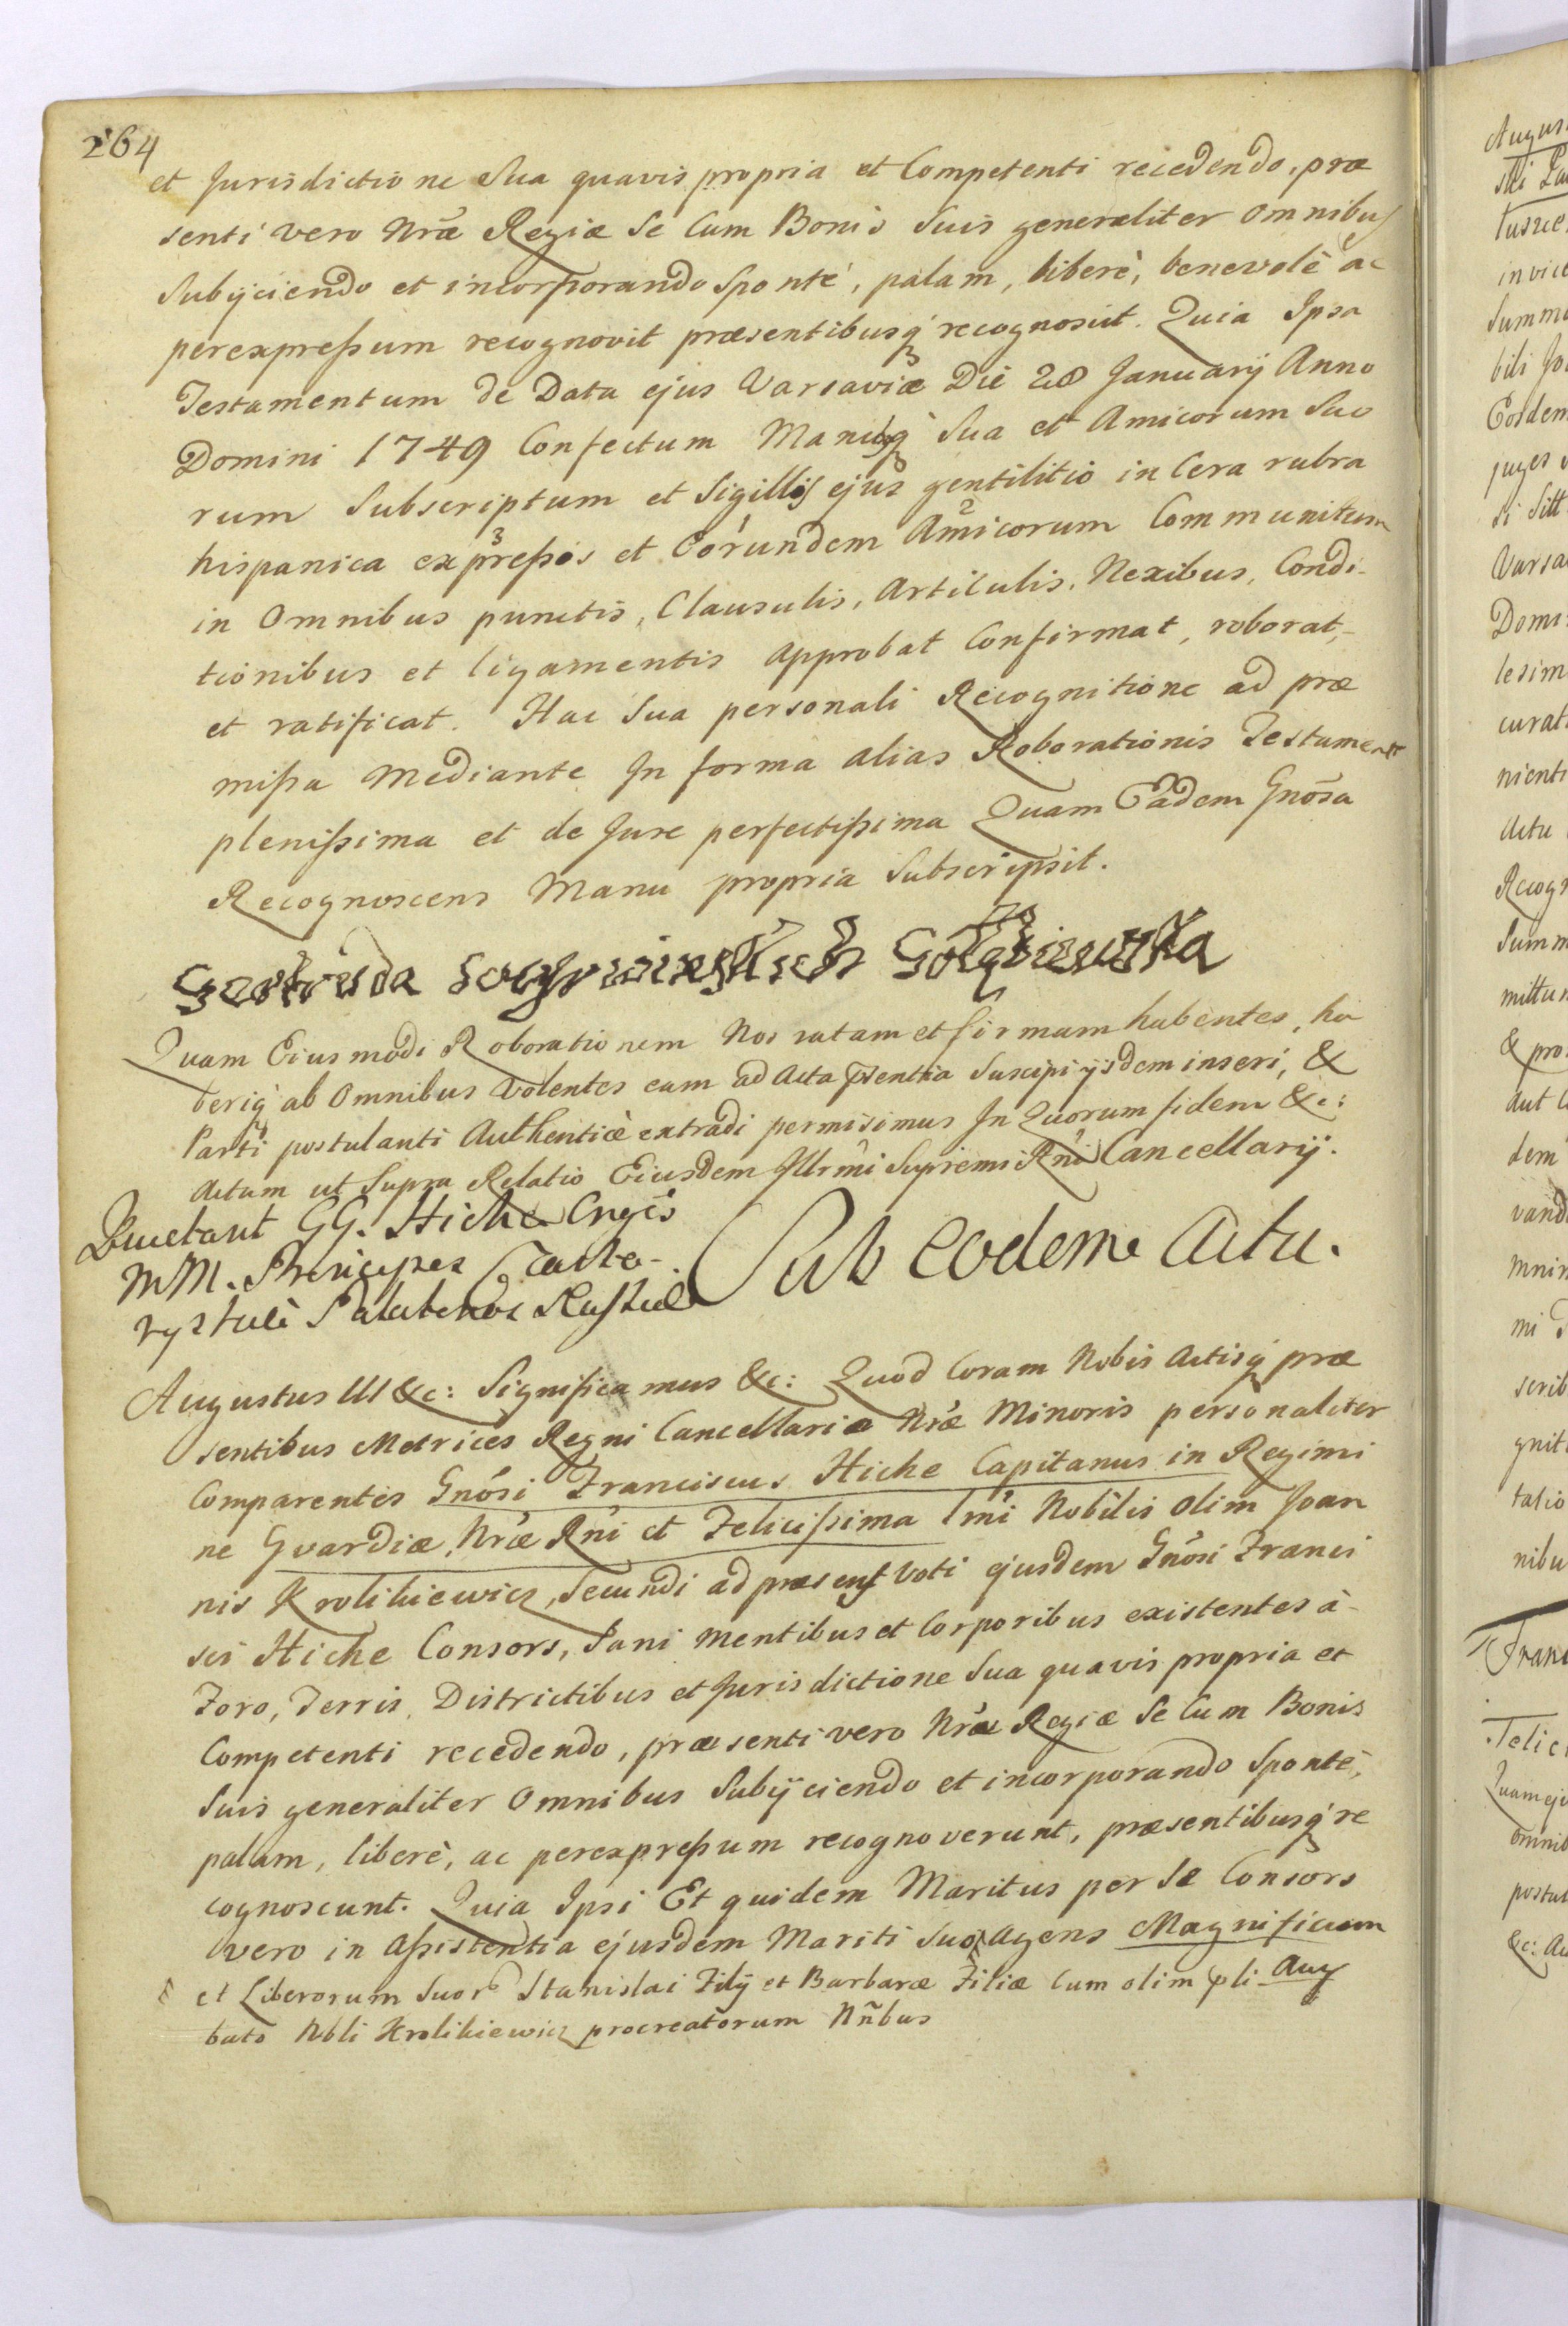 264
et Jurisdictione Sua quavis propria et Competenti recedendo, præ
senti vero Nrã Regiæ Se Cum Bonis Suis generaliter omnibus
Subÿciendo et incorporando Sponté, palam, liberè, benevolè ac
perexpreſsum recognovit præsentibusq́ recognoscit. Quia Ipsa
Testamentum de Data ejus Varsaviæ Die 28 Januarÿ Anno
Domini 1749 Confectum Manuq́ Sua et Amicorum Suo
rum Subscriptum et Sigillis ejus gentilitio in Cera rubra
hispanica expreſsis et Eorundem Amicorum Communitum
in Omnibus punctis, Clausulis, Articulis, Nexibus, Condi-
tionibus et ligamentis approbat Confirmat, roborat,
et ratificat. Hac Sua personali Recognitione ad præ
miſsa Mediante In forma alias Roborationis Testamenti
pleniſsima et de Jure perfectiſsima Quam Eadem Gnõsa
Recognoscens Manu propria Subscripsit.
Quam Eiusmodi Roborationem Nos ratam et firmam habentes, ha
beriq́ ab Omnibus Volentes eam ad Acta p̃sentia Suscipi ijsdem inseri, &
Parti postulanti Authenticè extradi permisimus In Quorum fidem &c:
Actum ut Supra Relatio Eiusdem Illrmi Supremi Rni Cancellarÿ.
GG. Hiche
MM. Principes Czarto-
ryskie
Sub eodem Actu.
Augustus III &c: Significamus &c: Quod Coram Nobis Actisq́ præ
sentibus Metrices Regni Cancellariæ Nræ Minoris personaliter
Comparentes Gnósi Franciscus Hiche Capitanus in Regimi
ne Gvardiæ Nræ Rńi et Feliciſsima 1mi Nobilis olim Joan
nis Krolikiewicz, Secundi ad præsens Voti ejusdem Gnósi Franci
sci Hiche Consors, Sani Mentibus et Corporibus existentes à
Foro, Terris, Districtibus et Jurisdictione Sua quavis propria et
Competenti recedendo, præsenti vero Nræ Regiæ Se Cum Bonis
Suis generaliter Omnibus Subÿciendo et incorporando Sponté,
palam, liberè, ac perexpreſsum recognoverunt, præsentibusq́ re
cognoscunt. Quia Ipsi Et quidem Maritus per Se Consors
vero in Aſsistentia ejusdem Mariti Sui Agens Magnificum
et Liberorum Suor Stanislai Filÿ et Barbaræ Filiæ Cum olim Aug
bato Nbli Krolikiewicz procreatorum Nñbus